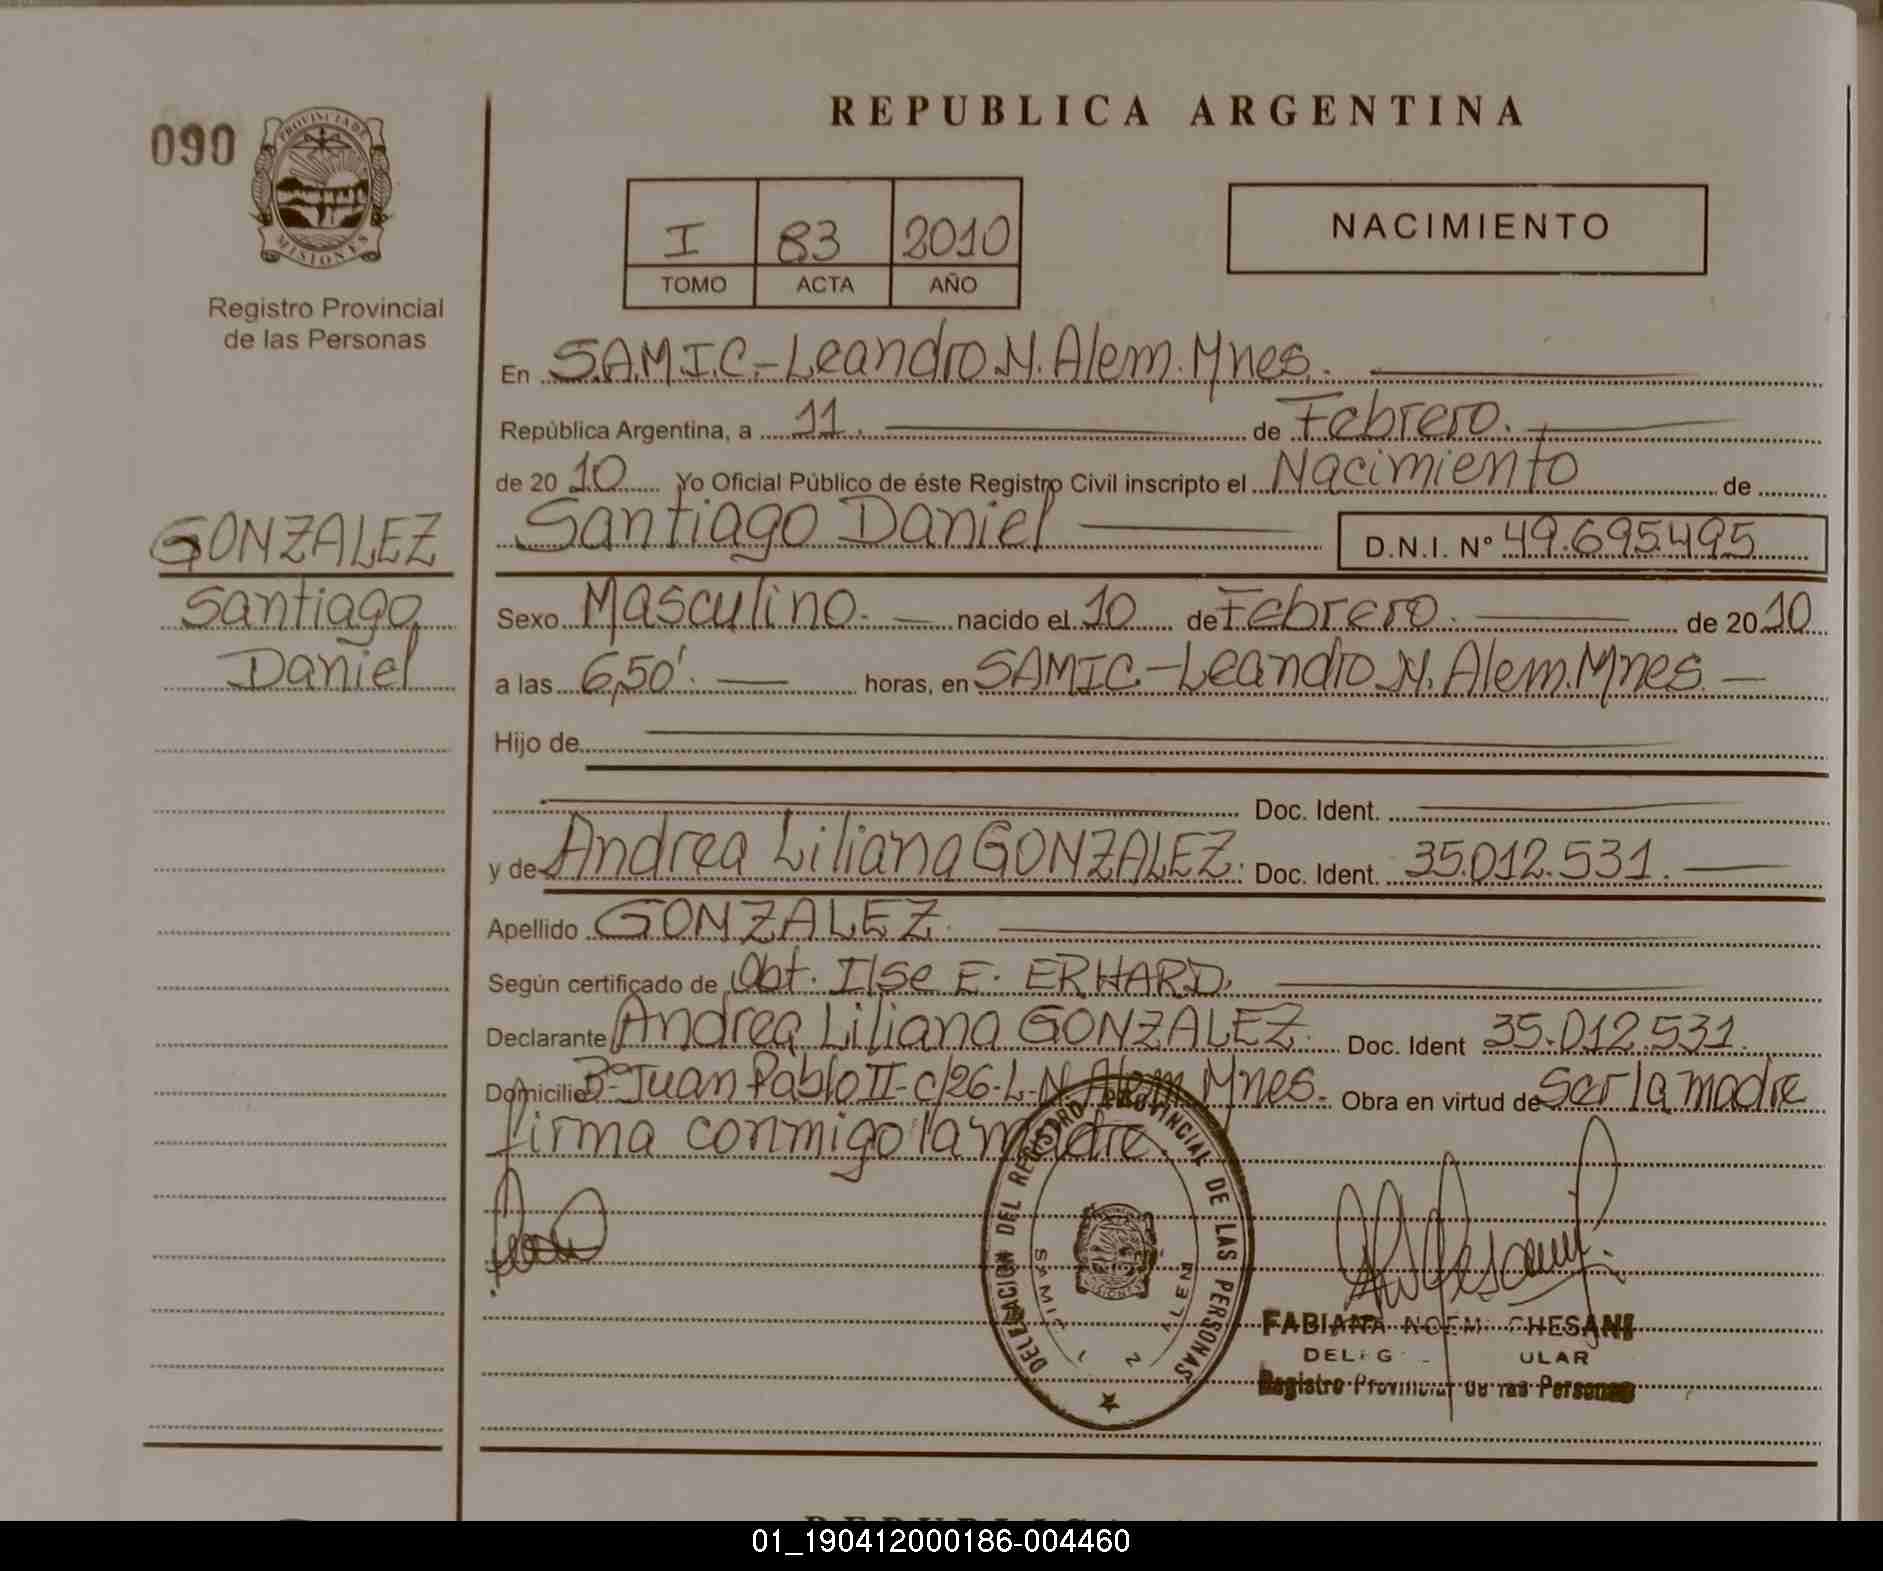 REPUBLICA ARGENTINA
090
PROVINCIA DE
MISIONES
Registro Provincial
de las Personas
I 83 2010
TOMO ACTA AÑO
NACIMIENTO
En S.A.M.I.C.-Leandro N. Alem. Mnes.
República Argentina, a 11. de Febrero.
de 2010 Yo Oficial Público de éste Registro Civil inscripto el Nacimiento de
Santiago Daniel D.N.I. Nº 49.695.495
GONZALEZ
Santiago
Daniel
Sexo Masculino. nacido el 10 de Febrero. de 2010
a las 6,50'. horas, en SAMIC.-Leandro N. Alem. Mnes.
Hijo de
Doc. Ident.
y de Andrea Liliana GONZALEZ. Doc. Ident. 35.012.531.
Apellido GONZALEZ.
Según certificado de Obt. Ilse E. ERHARD.
Declarante Andrea Liliana GONZALEZ. Doc. Ident 35.012.531.
Domicilio Bº Juan Pablo II-c/26-L.N. Alem. Mnes. Obra en virtud de Ser la madre
firma conmigo la madre.
DELEGACION DEL REGISTRO PROVINCIAL DE LAS PERSONAS
SAMIC L N ALEM
FABIANA NOEMI CHESANI
Registro Provincial de las Personas
01_190412000186-004460